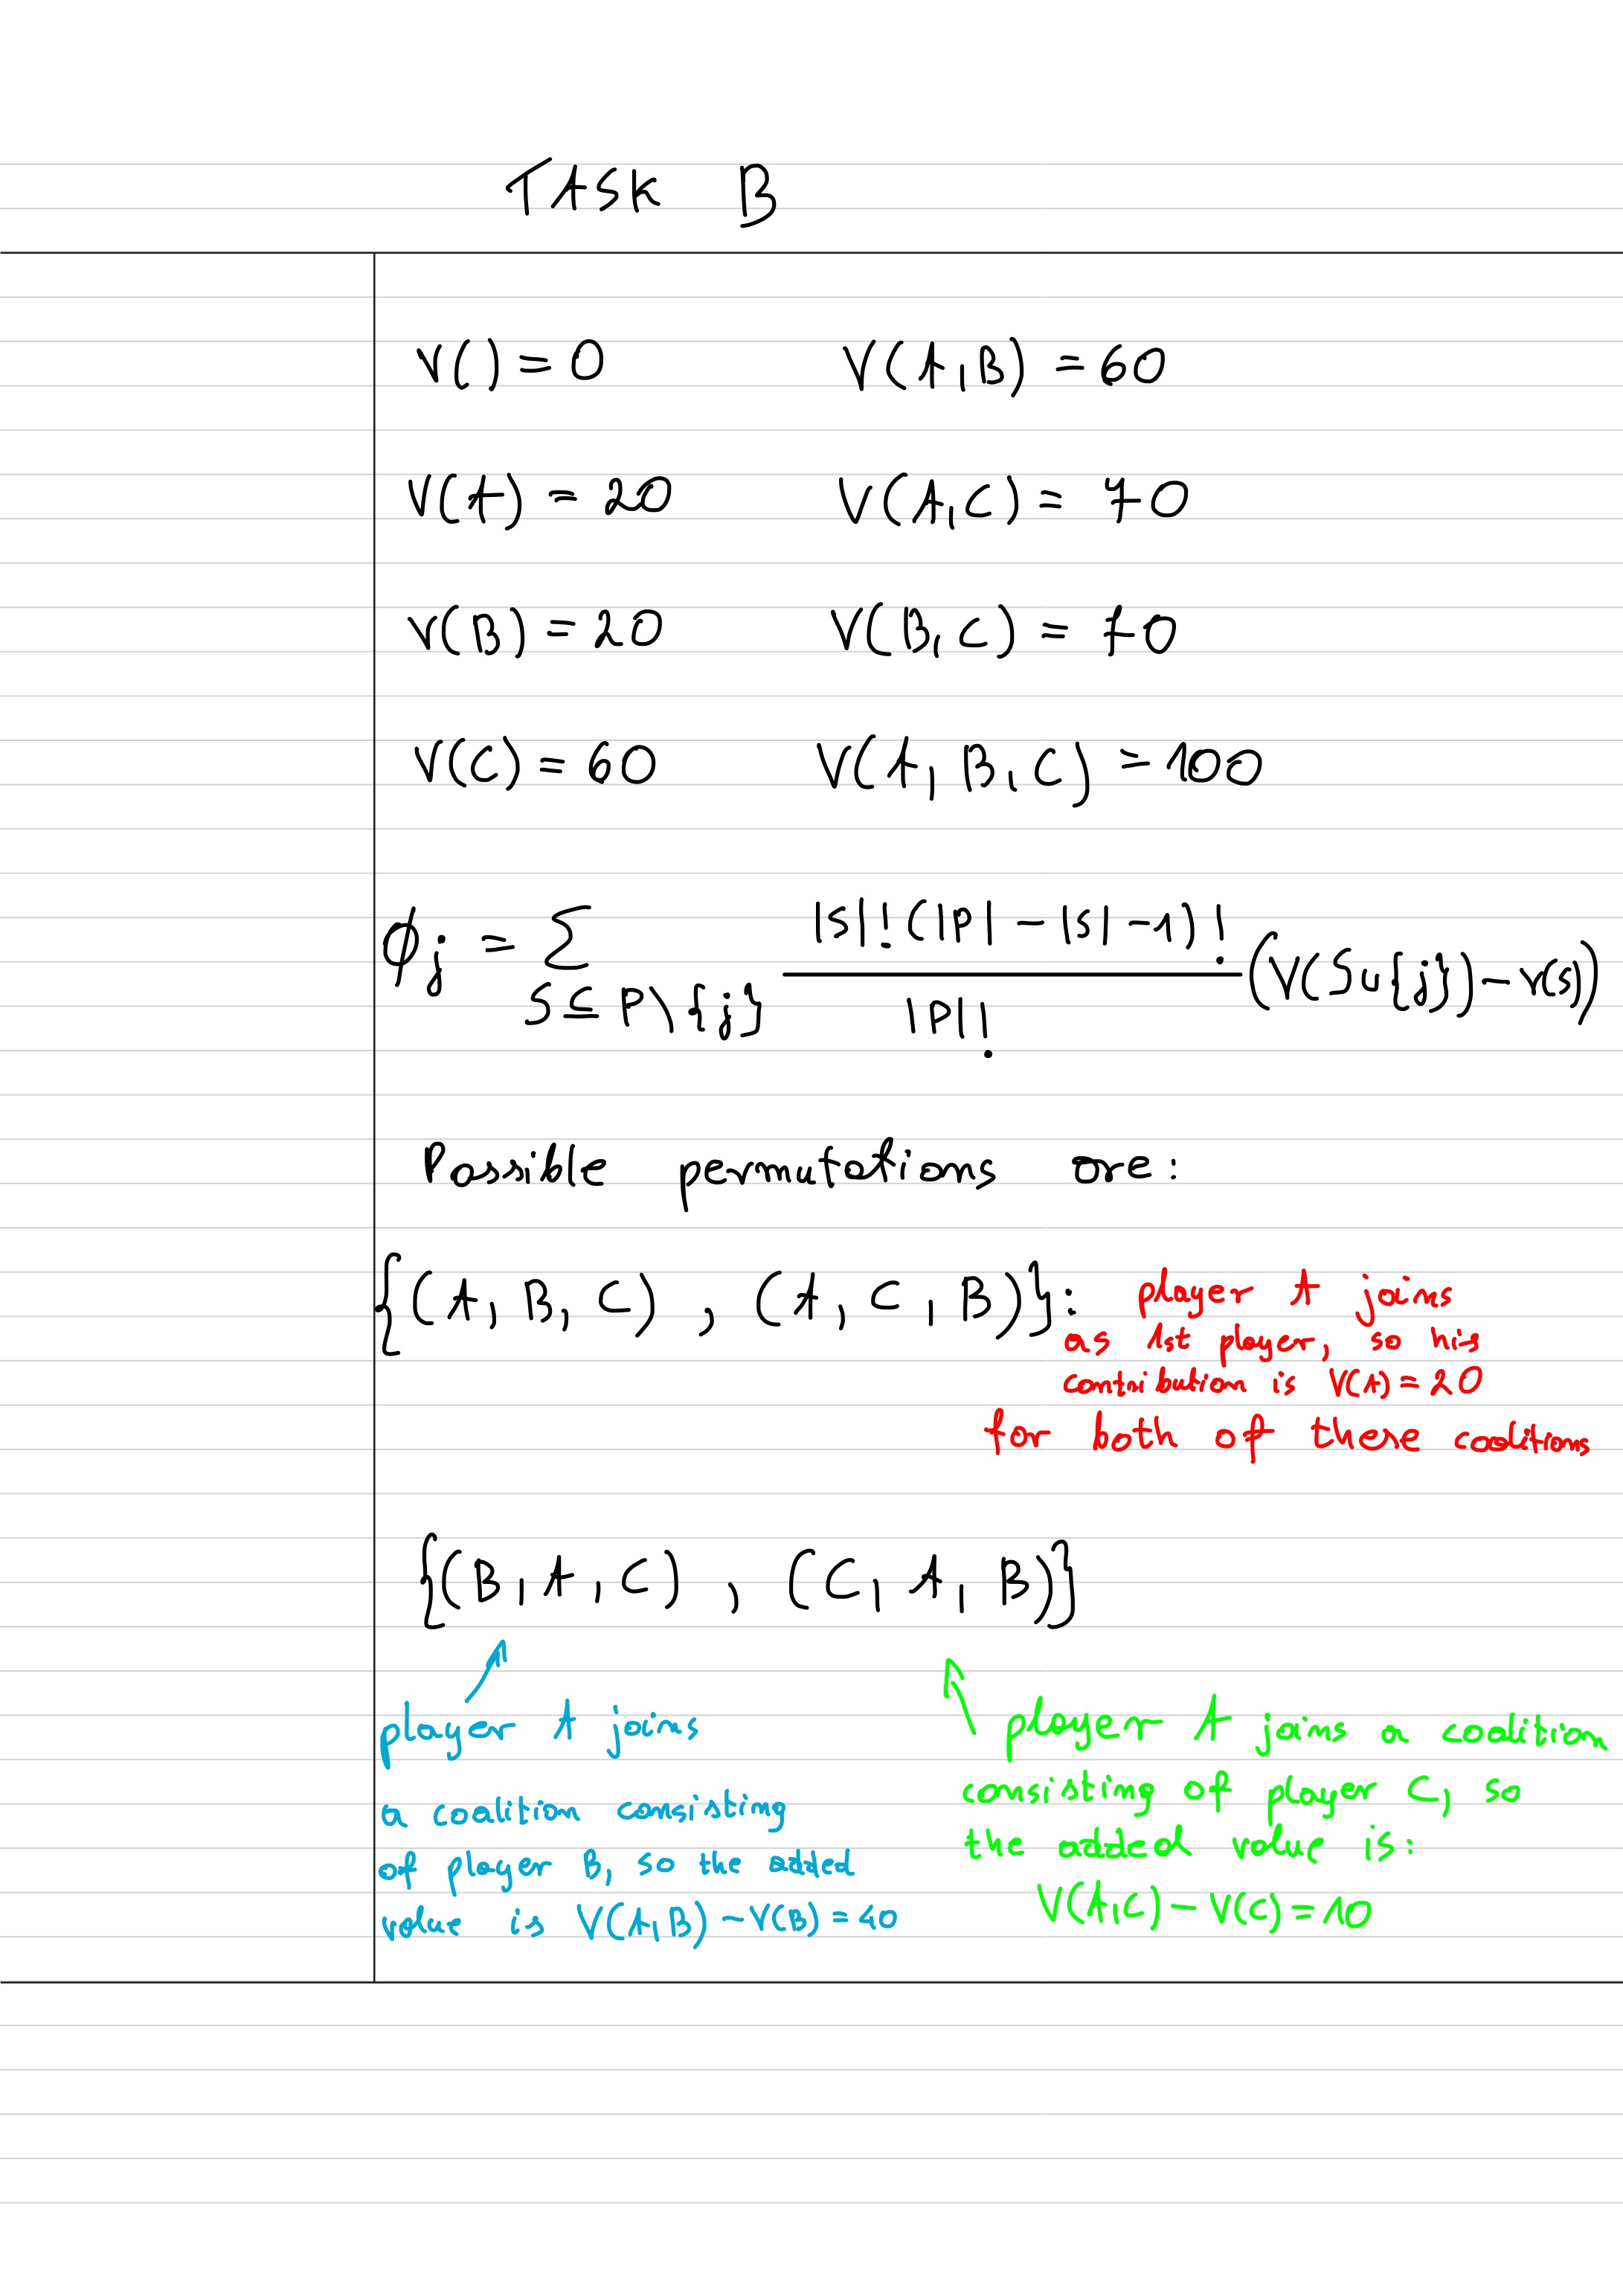 TASK B
V() = 0 V(A,B) = 60
V(A) = 20 V(A,C) = 70
V(B) = 20 V(B,C) = 70
V(C) = 60 V(A,B,C) = 100
ϕj = Σ S⊆P\{j} |S|!(|P| - |S| - 1)! / |P|! (V(S∪{j}) - V(S))
Possible permutations are:
{(A,B,C), (A,C,B)}: player A joins
as 1st player, so his
contribution is V(A) = 20
for both of these coalitions
{(B,A,C), (C,A,B)}
player A joins
a coalition consisting
of player B, so the added
value is V(A,B) - V(B) = 40
player A joins a coalition
consisting of player C, so
the added value is:
V(A,C) - V(C) = 10